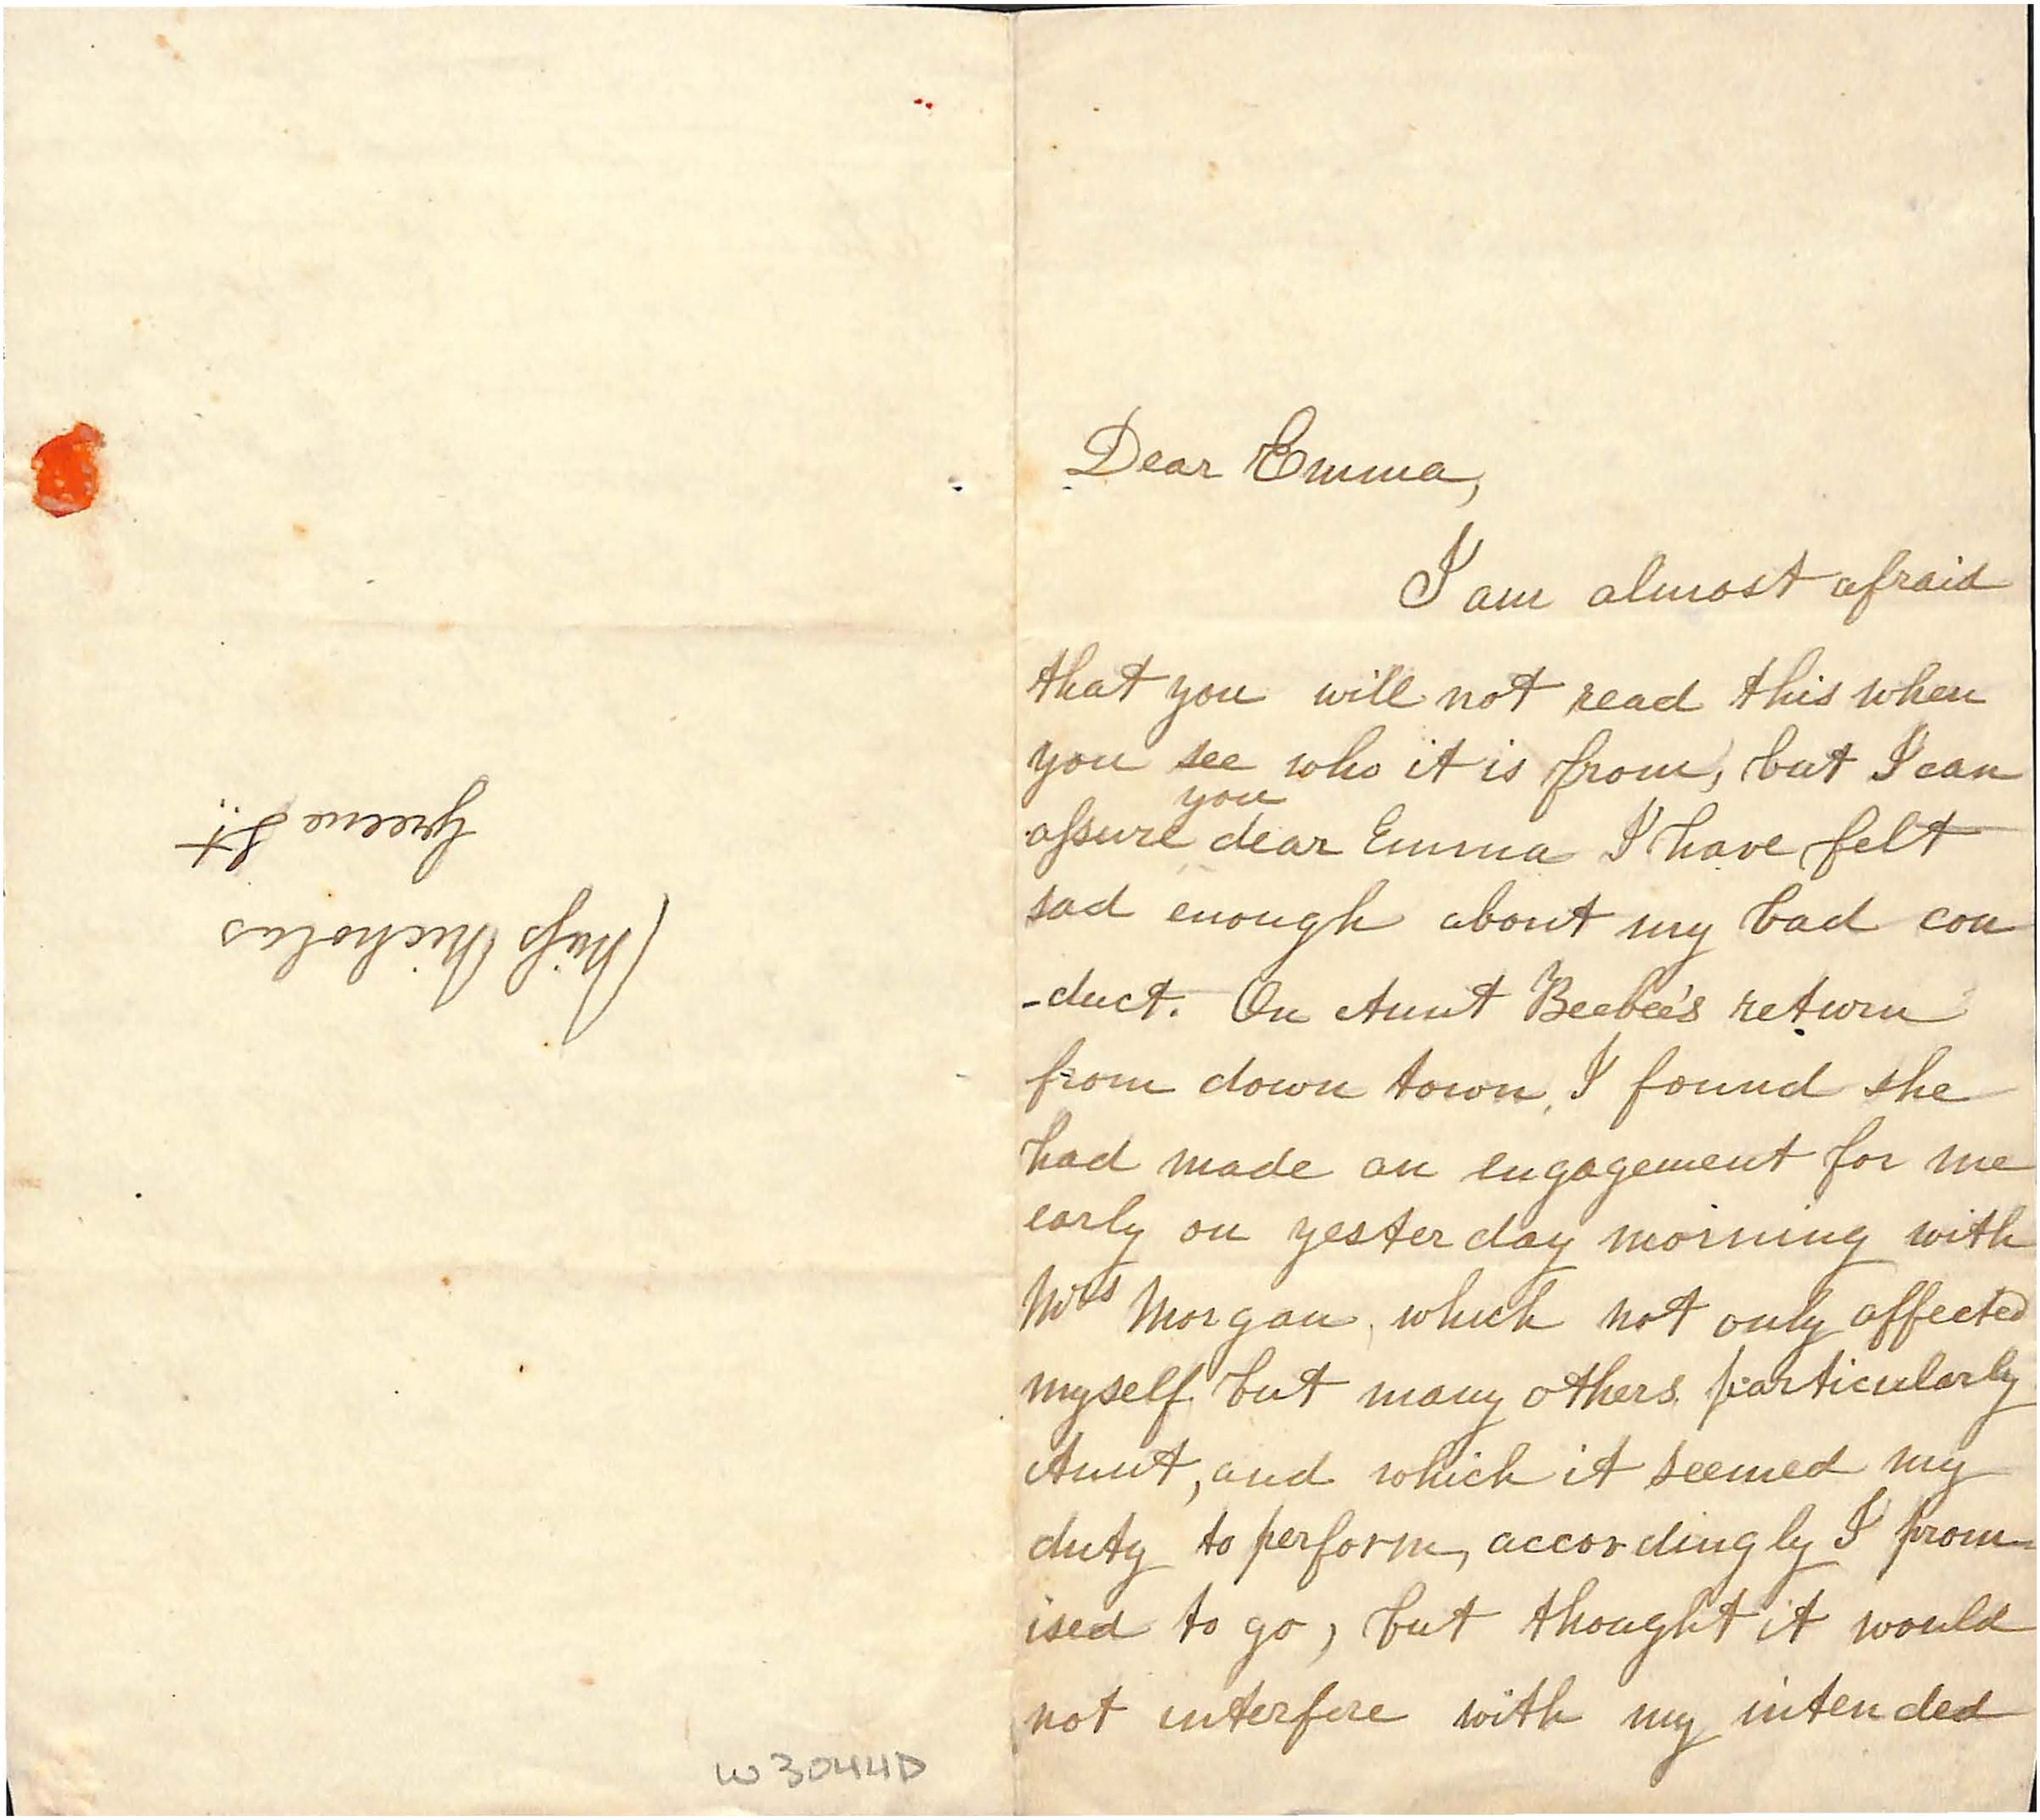 Miss Nicholas
Greene St
W3044D
Dear Emma,
I am almost afraid
that you will not read this when
you see who it is from, but I can
you
assure dear Emma I have felt
sad enough about my bad con
-duct. On Aunt Beebee's return
from down town, I found she
had made an engagement for me
early on yesterday morning with
Mrs Morgan, which not only affected
myself but many others particularly
Aunt, and which it seemed my
duty to perform, accordingly I prom-
ised to go, but thought it would
not interfere with my intended